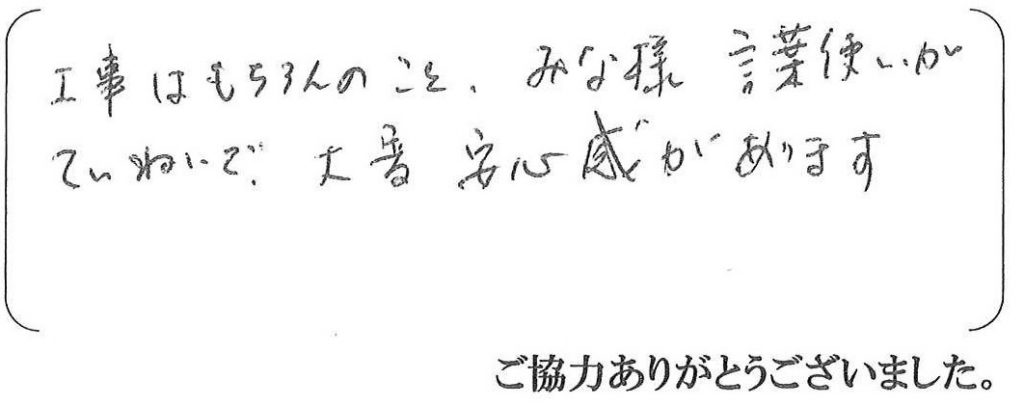 工事はもちろんのこと、みな様 言葉使いが
ていねいで、大番 安心感があります
ご協力ありがとうございました。